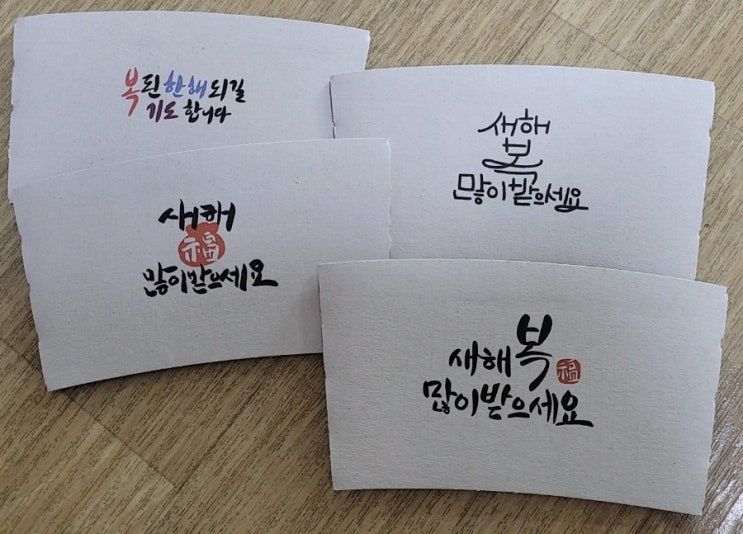 복된 한해 되길
기도 합니다
새해
복
많이받으세요
새해
福
많이받으세요
새해 복 福
많이받으세요